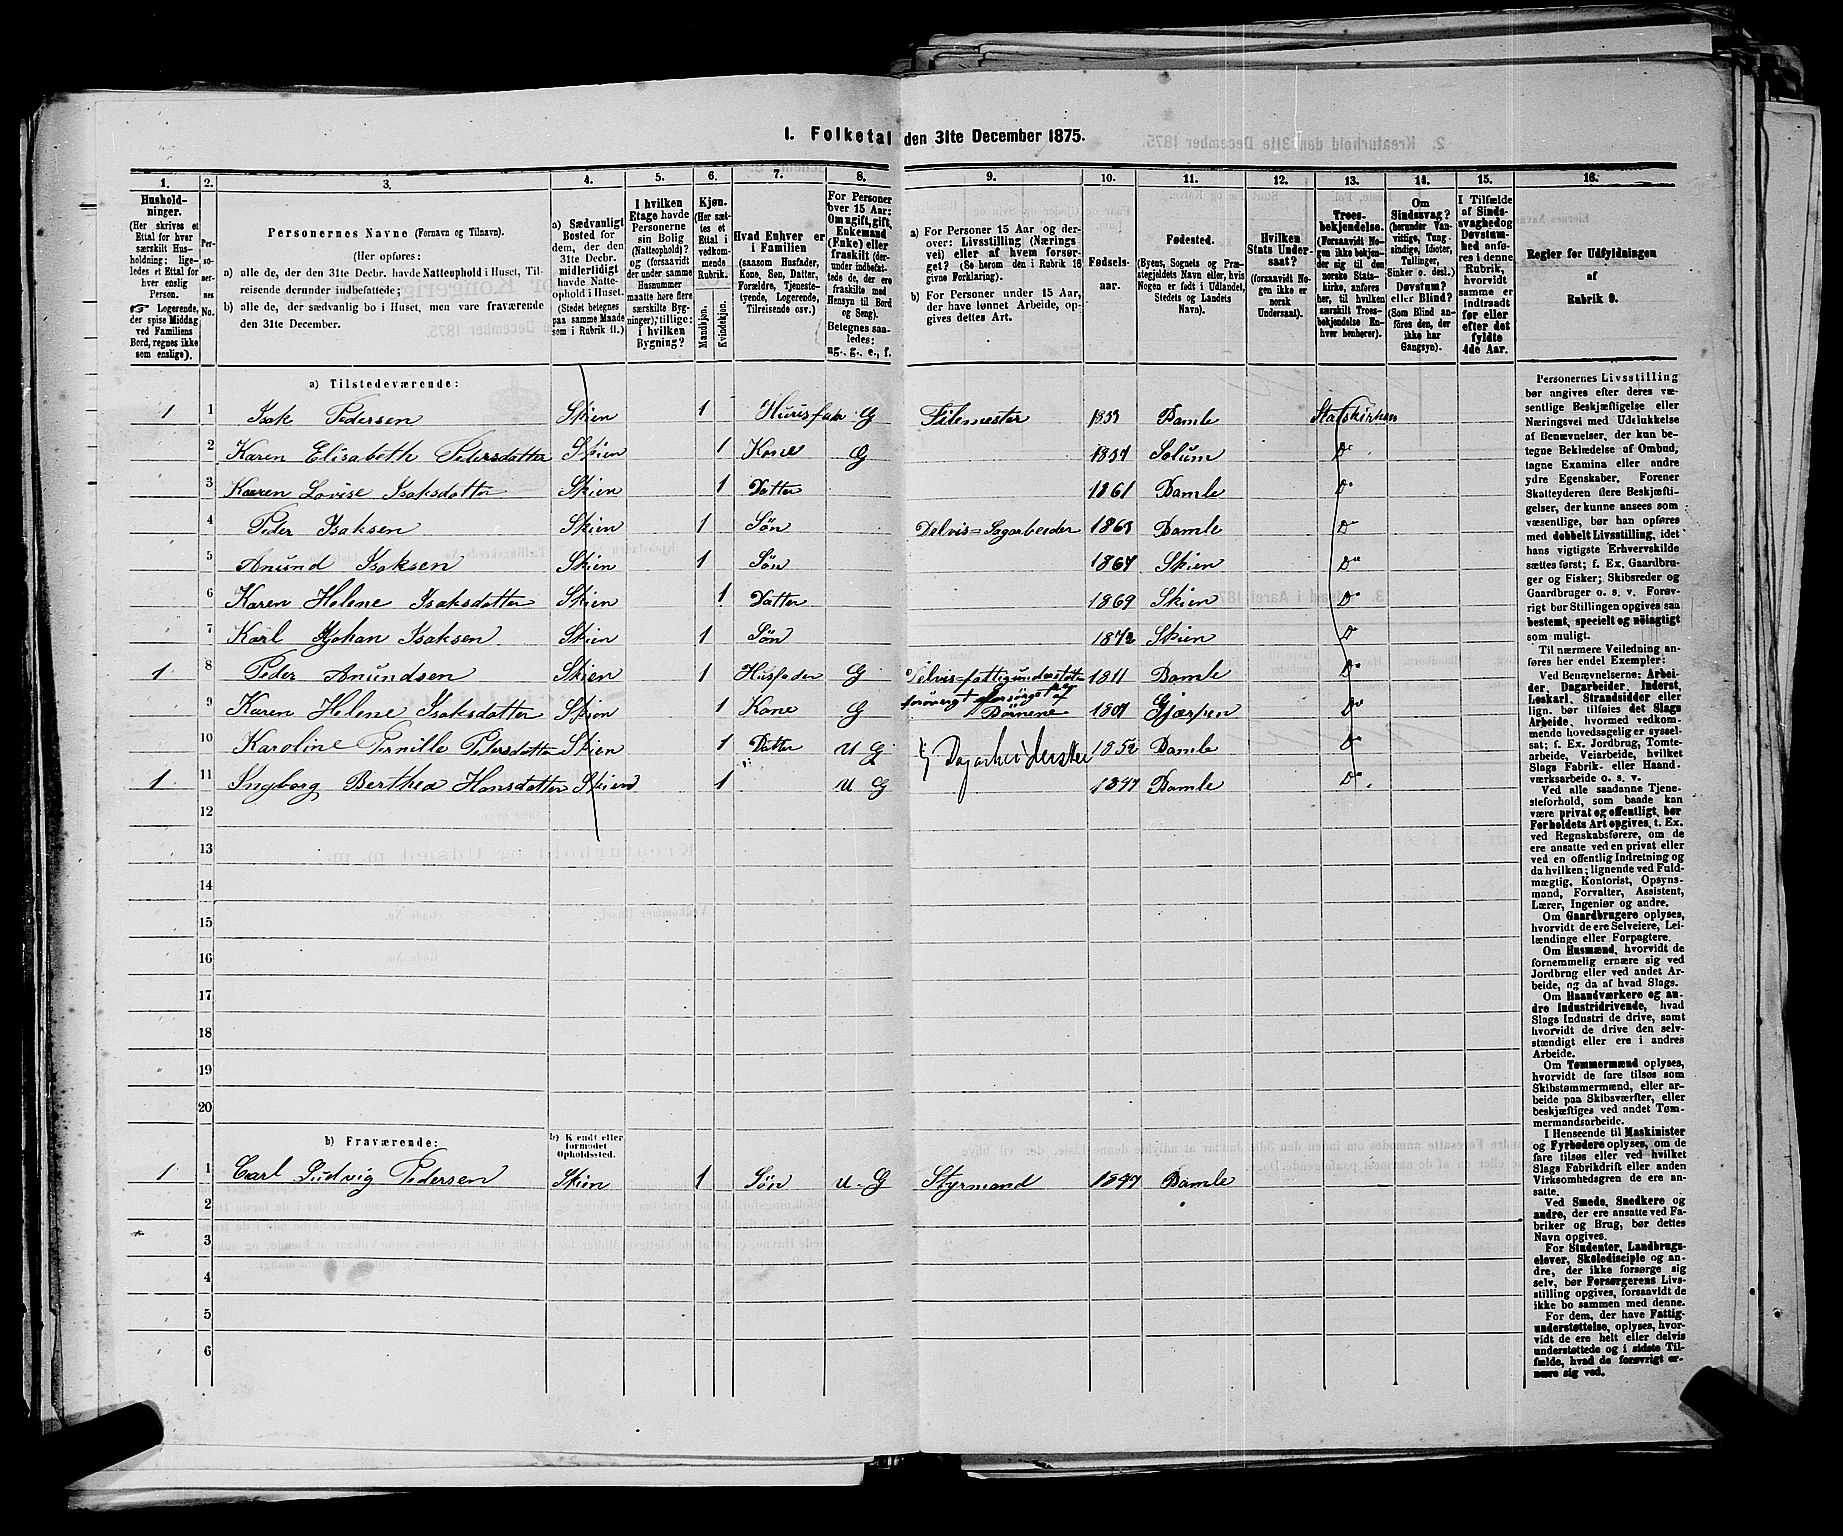 1. Folketal den 31te December 1875.
1. 2. 3. 4. 5. 6. 7. 8. 9. 10. 11. 12. 13. 14. 15. 16.
Husholdninger.
(Her skrives et Ettal for hver særskilt Husholdning; ligeledes et Ettal for hver enslig Person.
Logerende, der spise Middag ved Familiens Bord, regnes ikke som enslige).
Personernes No.
Personernes Navne (Fornavn og Tilnavn).
(Her opføres:
a) alle de, der den 31te Decbr. havde Natteophold i Huset, Tilreisende derunder indbefattede;
b) alle de, der sædvanlig bo i Huset, men vare fraværende den 31te December.
a) Sædvanligt Bosted for dem, der den 31te Decbr. midlertidigt havde Natteophold i Huset. (Stedet betegnes paa samme Maade som i Rubrik 11.)
I hvilken Etage havde Personerne sin Bolig (Natteophold)? og (forsaavidt der under samme Husnummer maatte høre flere særskilte Bygninger), tillige: i hvilken Bygning?
Kjøn. (Her sættes et Ettal i vedkommende Rubrik.
Mandkjøn.
Kvindekjøn.
Hvad Enhver er i Familien
(saasom Husfader, Kone, Søn, Datter, Forældre, Tjenestetyende, Logerende, Tilreisende osv.)
For Personer over 15 Aar: Om ugift, gift, Enkemand (Enke) eller fraskilt (derunder indbefattede de, der ere fraskilte med Hensyn til Bord og Seng).
Betegnes saaledes: ug., g., e., f.
a) For Personer 15 Aar og derover: Livsstilling (Næringsvei) eller af hvem forsørget? (Se herom den i Rubrik 16 givne Forklaring).
b) For Personer under 15 Aar, der have lønnet Arbeide, opgives dettes Art.
Fødselsaar.
Fødested.
(Byens, Sognets og Præstegjeldets Navn eller, hvis Nogen er født i Udlandet, Stedets og Landets Navn).
Hvilken Stats Undersaat?
(forsaavidt Nogen ikke er norsk Undersaat).
Troesbekjendelse.
(Forsaavidt Nogen ikke bekjender sig til den norske Statskirke, anføres her, til hvilken særskilt Troesbekjendelse Enhver henhører).
Om Sindssvag? (herunder Vanvittige, Tungsindige, Idioter, Tullinger, Sinker o. desl.)
Døvstum? eller Blind? (Som Blind anføres den, der ikke har Gangsyn).
I Tilfælde af Sindssvaghed og Døvstumhed anføres i denne Rubrik, hvorvidt samme er indtraadt før eller efter det fyldte 4de Aar.
Regler for Udfyldningen af Rubrik 9.
a) Tilstedeværende:
1 1 Isak Pedersen Skien 1 Huusfader G Filemester 1833 Bamle Statskirken
2 Karen Elisabeth Pedersdatter Skien 1 Kone G 1837 Solum Do
3 Karen Lovise Isaksdatter Skien 1 Datter 1861 Bamle Do
4 Peder Isaksen Skien 1 Søn Delvis=Sagarbeider 1863 Bamle Do
5 Anund Isaksen Skien 1 Søn 1867 Skien Do
6 Karen Helene Isaksdatter Skien 1 Datter 1869 Skien Do
7 Karl Johan Isaksen Skien 1 Søn 1872 Skien Do
1 8 Peder Anundsen Skien 1 Husfader G Delvis=fattigunderstøttet 1811 Bamle Do
9 Karen Helene Isaksdatter Skien 1 Kone G forøvrigt forsørget af Børnene 1807 Gjærpen Do
10 Karoline Pernille Pedersdatter Skien 1 Datter U G Dagarbeiderske 1852 Bamle Do
1 11 Ingborg Berthea Hansdatter Skien 1 U G 1847 Bamle Do.
12
13
14
15
16
17
18
19
20
b) Fraværende:
b) Kendt eller formodet Opholdssted.
1 1 Carl Ludvig Pedersen Skien 1 Søn U. G Styrmand 1847 Bamle
2
3
4
5
6
Personernes Livsstilling bør angives efter deres væsentlige Beskjæftigelse eller Næringsvei med Udelukkelse af Benævnelser, der kun betegne Beklædelse af Ombud, tagne Examina eller andre ydre Egenskaber. Forener Skatteyderen flere Beskjæftigelser, der kunne ansees som væsentlige, bør han opføres med dobbelt Livsstilling, idet hans vigtigste Erhvervskilde sættes først; f. Ex. Gaardbruger og Fisker; Skibsreder og Gaardbruger o. s. v. Forøvrigt bør Stillingen opgives saa bestemt, specielt og nøiagtigt som muligt.
Til nærmere Veiledning anføres her endel Exempler:
Ved Benævnelserne: Arbeider, Dagarbeider, Inderst, Løskarl, Strandsidder eller lign. bør tilføies det Slags Arbeide, hvormed vedkommende hovedsagelig er sysselsat; f. Ex. Jordbrug, Tomtearbeide, Veiarbeide, hvilket Slags Fabrik- eller Haandværksarbeide o. s. v.
Ved alle saadanne Tjenesteforhold, som baade kan være privat og offentligt, bør Forholdets Art opgives, t. Ex. ved Regnskabsførere, om de ere ansatte ved en privat eller ved en offentlig Indretning og da hvilken; lignende ved Fuldmægtig, Kontorist, Opsynsmand, Forvalter, Assistent, Lærer, Ingeniør og andre.
Om Gaardbrugere oplyses, hvorvidt de ere Selveiere, Leilændinge eller Forpagtere.
Om Husmænd, hvorvidt de fornemmelig ernære sig ved Jordbrug eller ved andet Arbeide, og da af hvad Slags.
Om Haandværkere og andre Industridrivende, hvad Slags Industri de drive, samt hvorvidt de drive den selvstændigt eller ere i andres Arbeide.
Om Tømmermænd oplyses, hvorvidt de fare tilsøs som Skibstømmermænd, eller arbeide paa Skibsværfter, eller beskjæftiges ved andet Tømmermandsarbeide.
I Henseende til Maskinister og Fyrbødere oplyses, om de fare tilsøs eller ved hvilket Slags Fabrikdrift eller anden Virksomhedsgren de ere ansatte.
Ved Smede, Snedkere og andre, der ere ansatte ved Fabriker og Brug, bør dettes Navn opgives.
For Studenter, Landbrugselever, Skoledisciple og andre, der ikke forsørge sig selv, bør Forsørgerens Livsstilling opgives, forsaavidt de ikke bo sammen med denne.
For dem, der have Fattigunderstøttelse, oplyses, hvorvidt de ere helt eller delvis understøttede og i sidste Tilfælde, hvad de forøvrigt ernære sig ved.